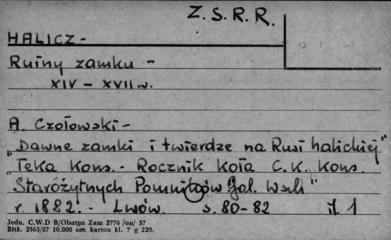 Z. S. R. R.
HALICZ -
Ruiny zamku -
XIV - XVII w.
A. Czołowski -
"Dawne zamki i twierdze na Rusi halickiej"
"Teka Kons. - Rocznik Koła C. K. Kons.
Starożytnych Pomników Gal. Wsch"
r. 1882. - Lwów. s. 80-82 il. 1
Jedn. C.W.D B/Olsztyn Zam 2776 /on/ 57
Bltk. 2563/57 10.000 szt. karton kl. 7 g 220.